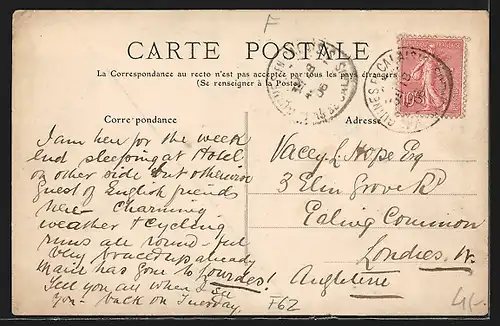 F
CARTE POSTALE
La Correspondance au recto n'est pas acceptée par tous les pays étrangers
(Se renseigner à la Poste)
Correspondance
Adresse
I am here for the week
end sleeping at Hotel
on other side but otherwise
guest of English friends
here - Charming
weather & cycling
runs all round - feel
very braced up already
Marie has gone to Lourdes!
Tell you all when I see
you - back on Tuesday.
Vacey L. Hope Esq
3 Elm Grove Rd
Ealing Common
Londres. W.
Angleterre
F62
4/-